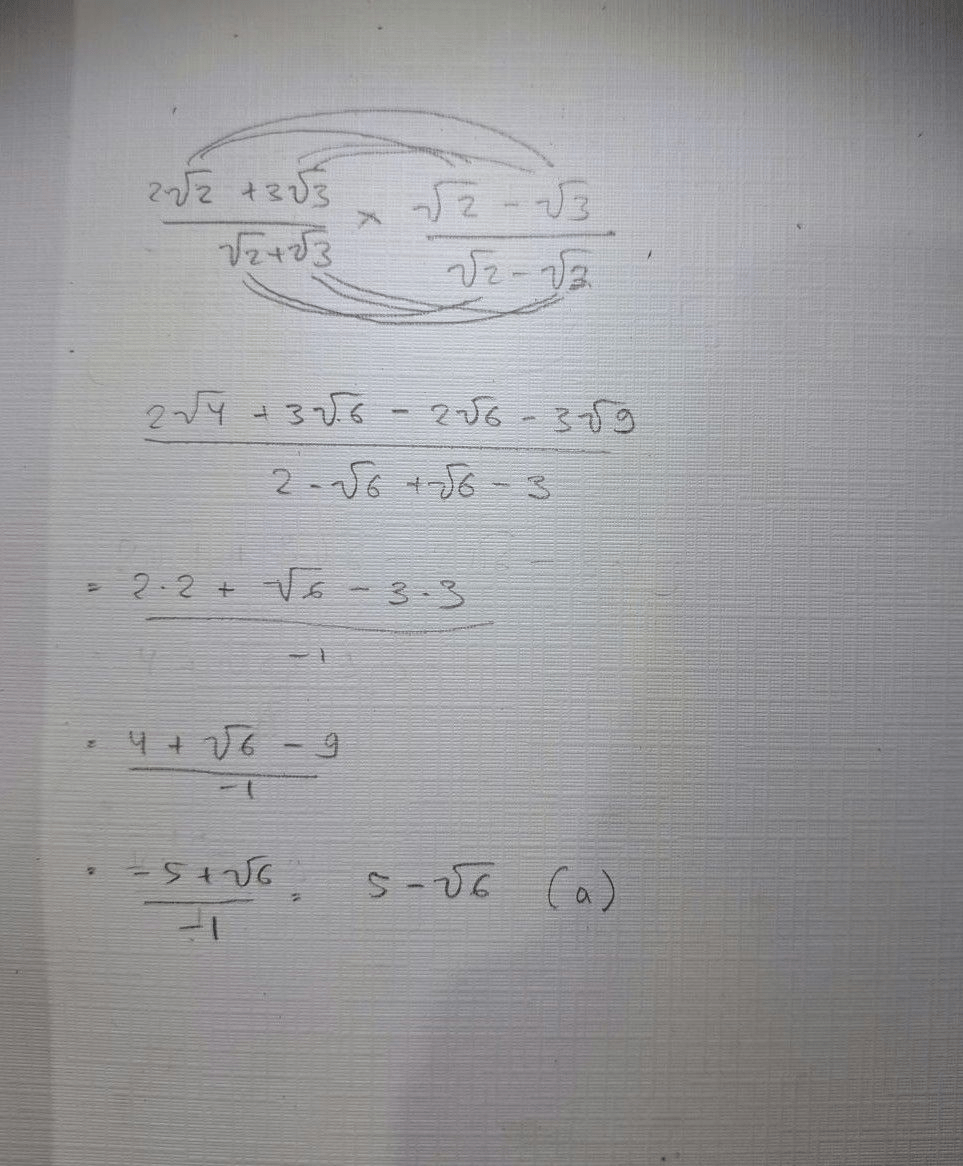 2√2 + 3√3 × √2 - √3
√2+√3 √2 - √3
2√4 + 3√6 - 2√6 - 3√9
2 - √6 + √6 - 3
= 2·2 + √6 - 3·3
-1
= 4 + √6 - 9
-1
= -5 + √6 = 5 - √6 (a)
-1